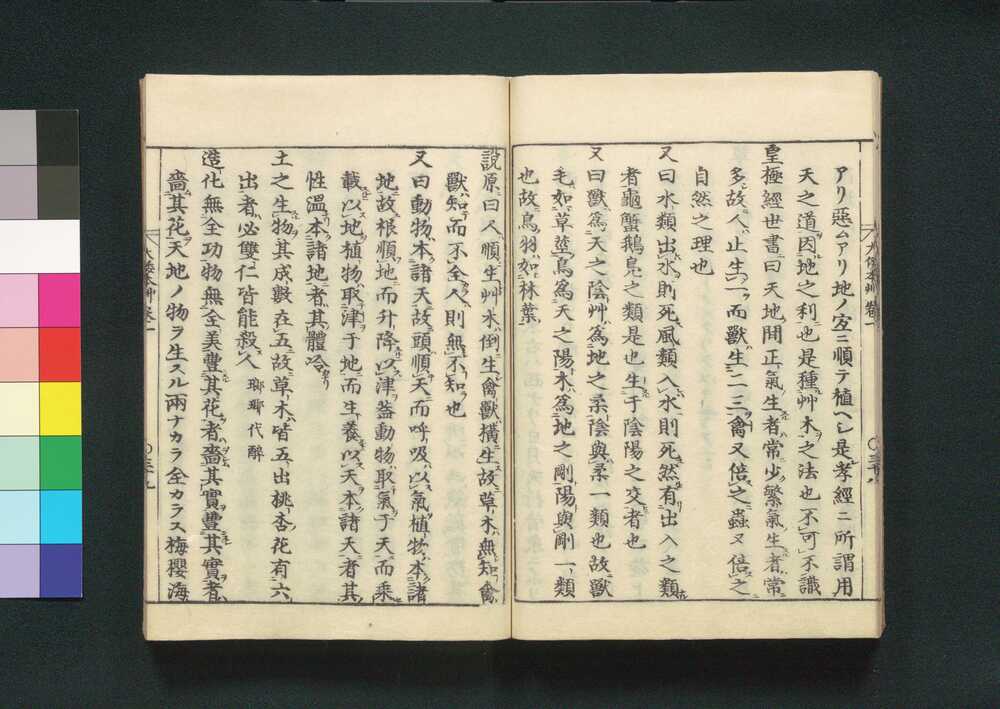 アリ惡ムアリ地ノ宜ニ順テ植ヘシ是孝經ニ所謂用
天之道因地之利也是種艸木之法也不可不識
皇極經世書曰天地間正氣生者常少繁氣生者常
多故人止生一而獸生二三禽又倍之蟲又倍之
自然之理也
又曰水類出水則死風類入水則死然有出入之類
者龜蟹鵝鳬之類是也生于陰陽之交者也
又曰獸爲天之陰艸爲地之柔陰與柔一類也故獸
毛如草莖鳥爲天之陽木爲地之剛陽與剛一類
也故鳥羽如林葉
說原曰人順生艸木倒生禽獸橫生故草木無知禽
獸知而不全人則無不知也
又曰動物本諸天故頭順天而呼吸以氣植物本諸
地故根順地而升降以津蓋動物取氣于天而乘
載以地植物取津于地而生養以天本諸天者其
性溫本諸地者其體冷
土之生物其成數在五故草木皆五出桃杏花有六
出者必雙仁皆能殺人 瑯琊代醉
造化無全功物無全美豐其花者嗇其實豐其實者
嗇其花天地ノ物ヲ生スル兩ナカラ全カラス梅櫻海
大倭本艸 卷一